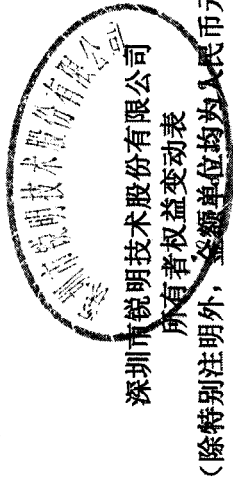 深圳市锐明技术股份有限公司
深圳市锐明技术股份有限公司
所有者权益变动表
（除特别注明外，金额单位均为人民币元